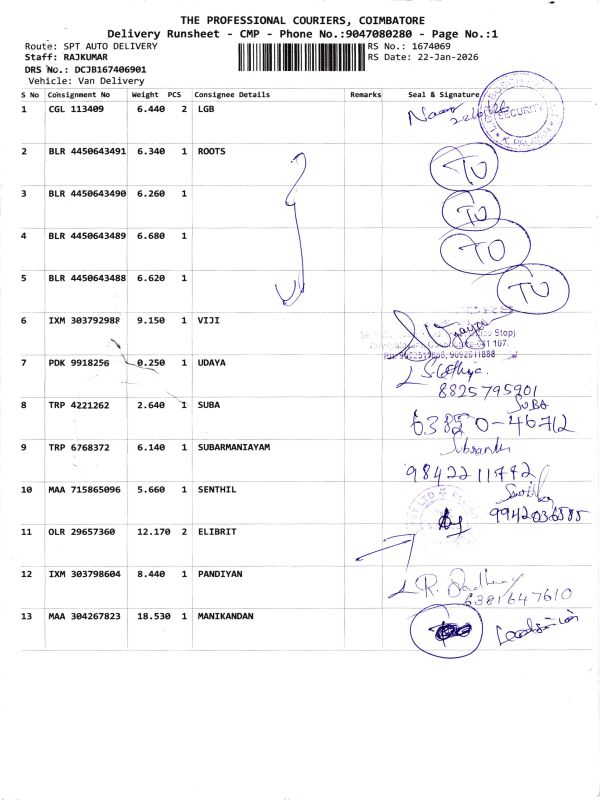 THE PROFESSIONAL COURIERS, COIMBATORE
Delivery Runsheet - CMP - Phone No.:9047080280 - Page No.:1
Route: SPT AUTO DELIVERY
RS No.: 1674069
Staff: RAJKUMAR
RS Date: 22-Jan-2026
DRS No.: DCJB167406901
Vehicle: Van Delivery
S No Consignment No Weight PCS Consignee Details Remarks Seal & Signature
1 CGL 113409 6.440 2 LGB
SECURITY
2 BLR 4450643491 6.340 1 ROOTS TO
3 BLR 4450643490 6.260 1 TO
4 BLR 4450643489 6.680 1 TO
5 BLR 4450643488 6.620 1 TO
6 IXM 303792988 9.150 1 VIJI
7 PDK 9918256 0.250 1 UDAYA
8825795901
8 TRP 4221262 2.640 1 SUBA SUBA
63820-46712
9 TRP 6768372 6.140 1 SUBARMANIAYAM
9842211772
10 MAA 715865096 5.660 1 SENTHIL
9942036585
11 OLR 29657360 12.170 2 ELIBRIT
12 IXM 303798604 8.440 1 PANDIYAN
6381647610
13 MAA 304267823 18.530 1 MANIKANDAN